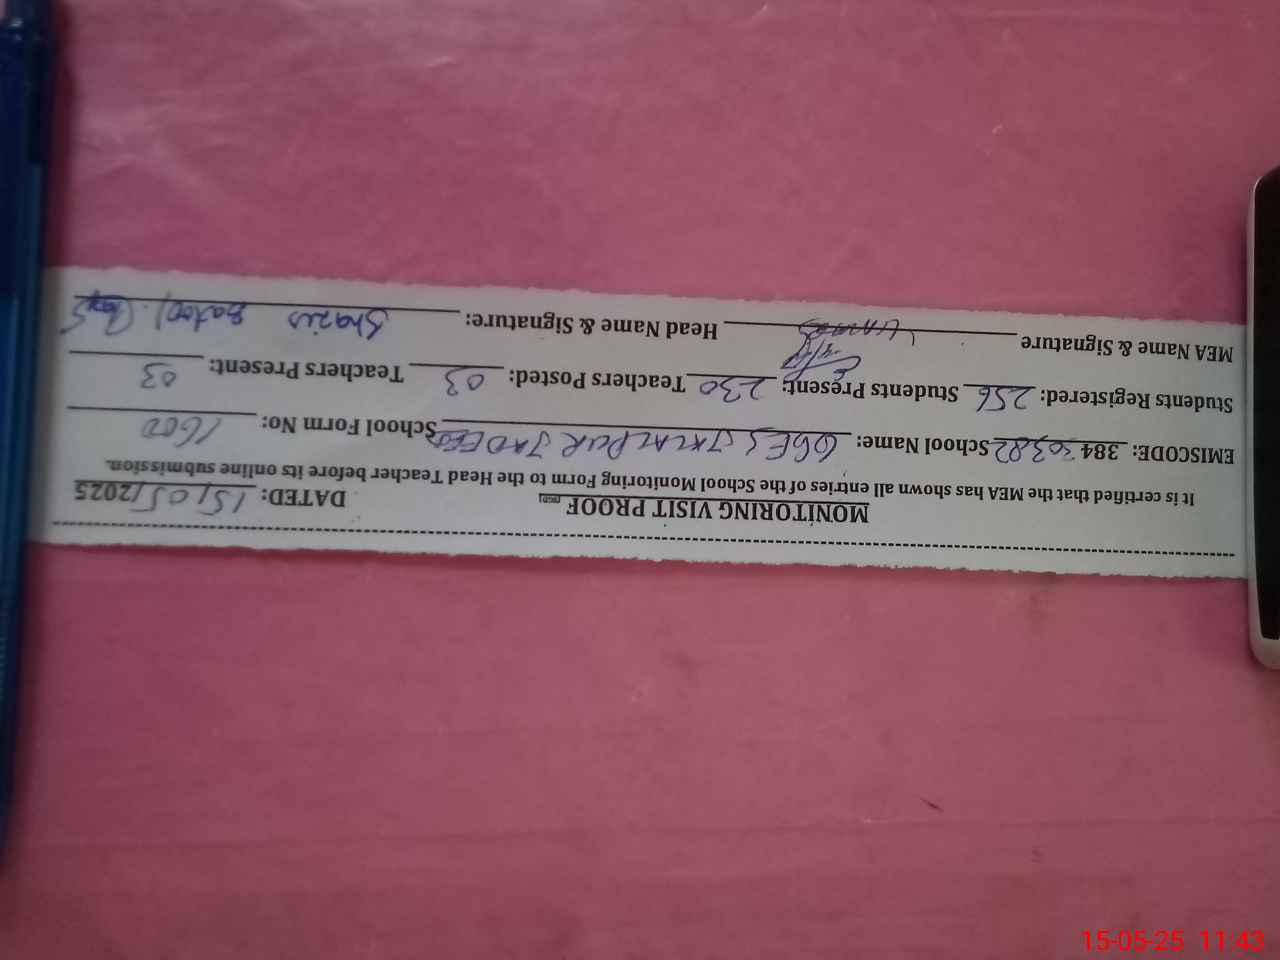 MONITORING VISIT PROOF DATED: 15/05/2025
It is certified that the MEA has shown all entries of the School Monitoring Form to the Head Teacher before its online submission.
EMISCODE: 384 30382 School Name: GGES JALALPUR JADEED School Form No: 1600
Students Registered: 256 Students Present: 230 Teachers Posted: 03 Teachers Present: 03
MEA Name & Signature Head Name & Signature: Shazia Batool
15-05-25 11:43